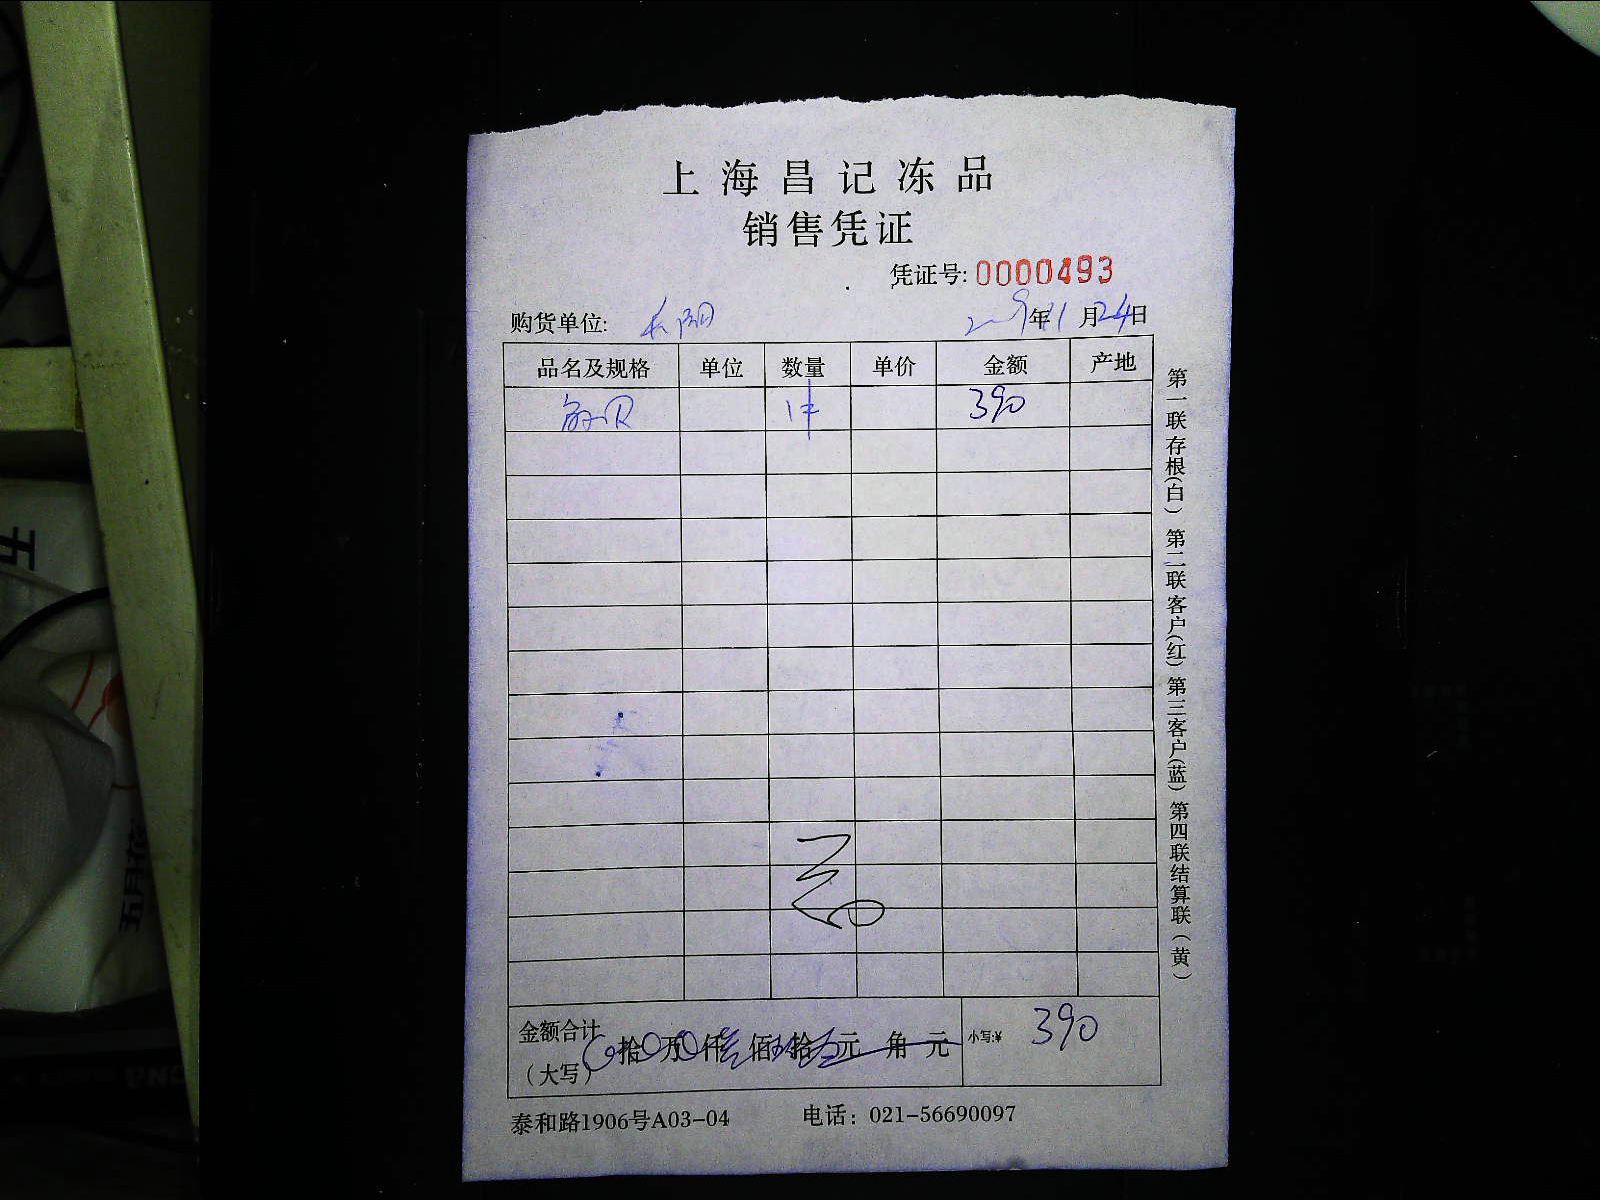 上海昌记冻品
销售凭证
凭证号: 0000493
购货单位: 长阳 年11月24日
品名及规格 单位 数量 单价 金额 产地
1件 390
金额合计 拾 万 仟 佰 拾 元 角 元 小写:¥ 390
(大写)
泰和路1906号A03-04 电话: 021-56690097
第一联存根(白) 第二联客户(红) 第三客户(蓝) 第四联结算联(黄)
五